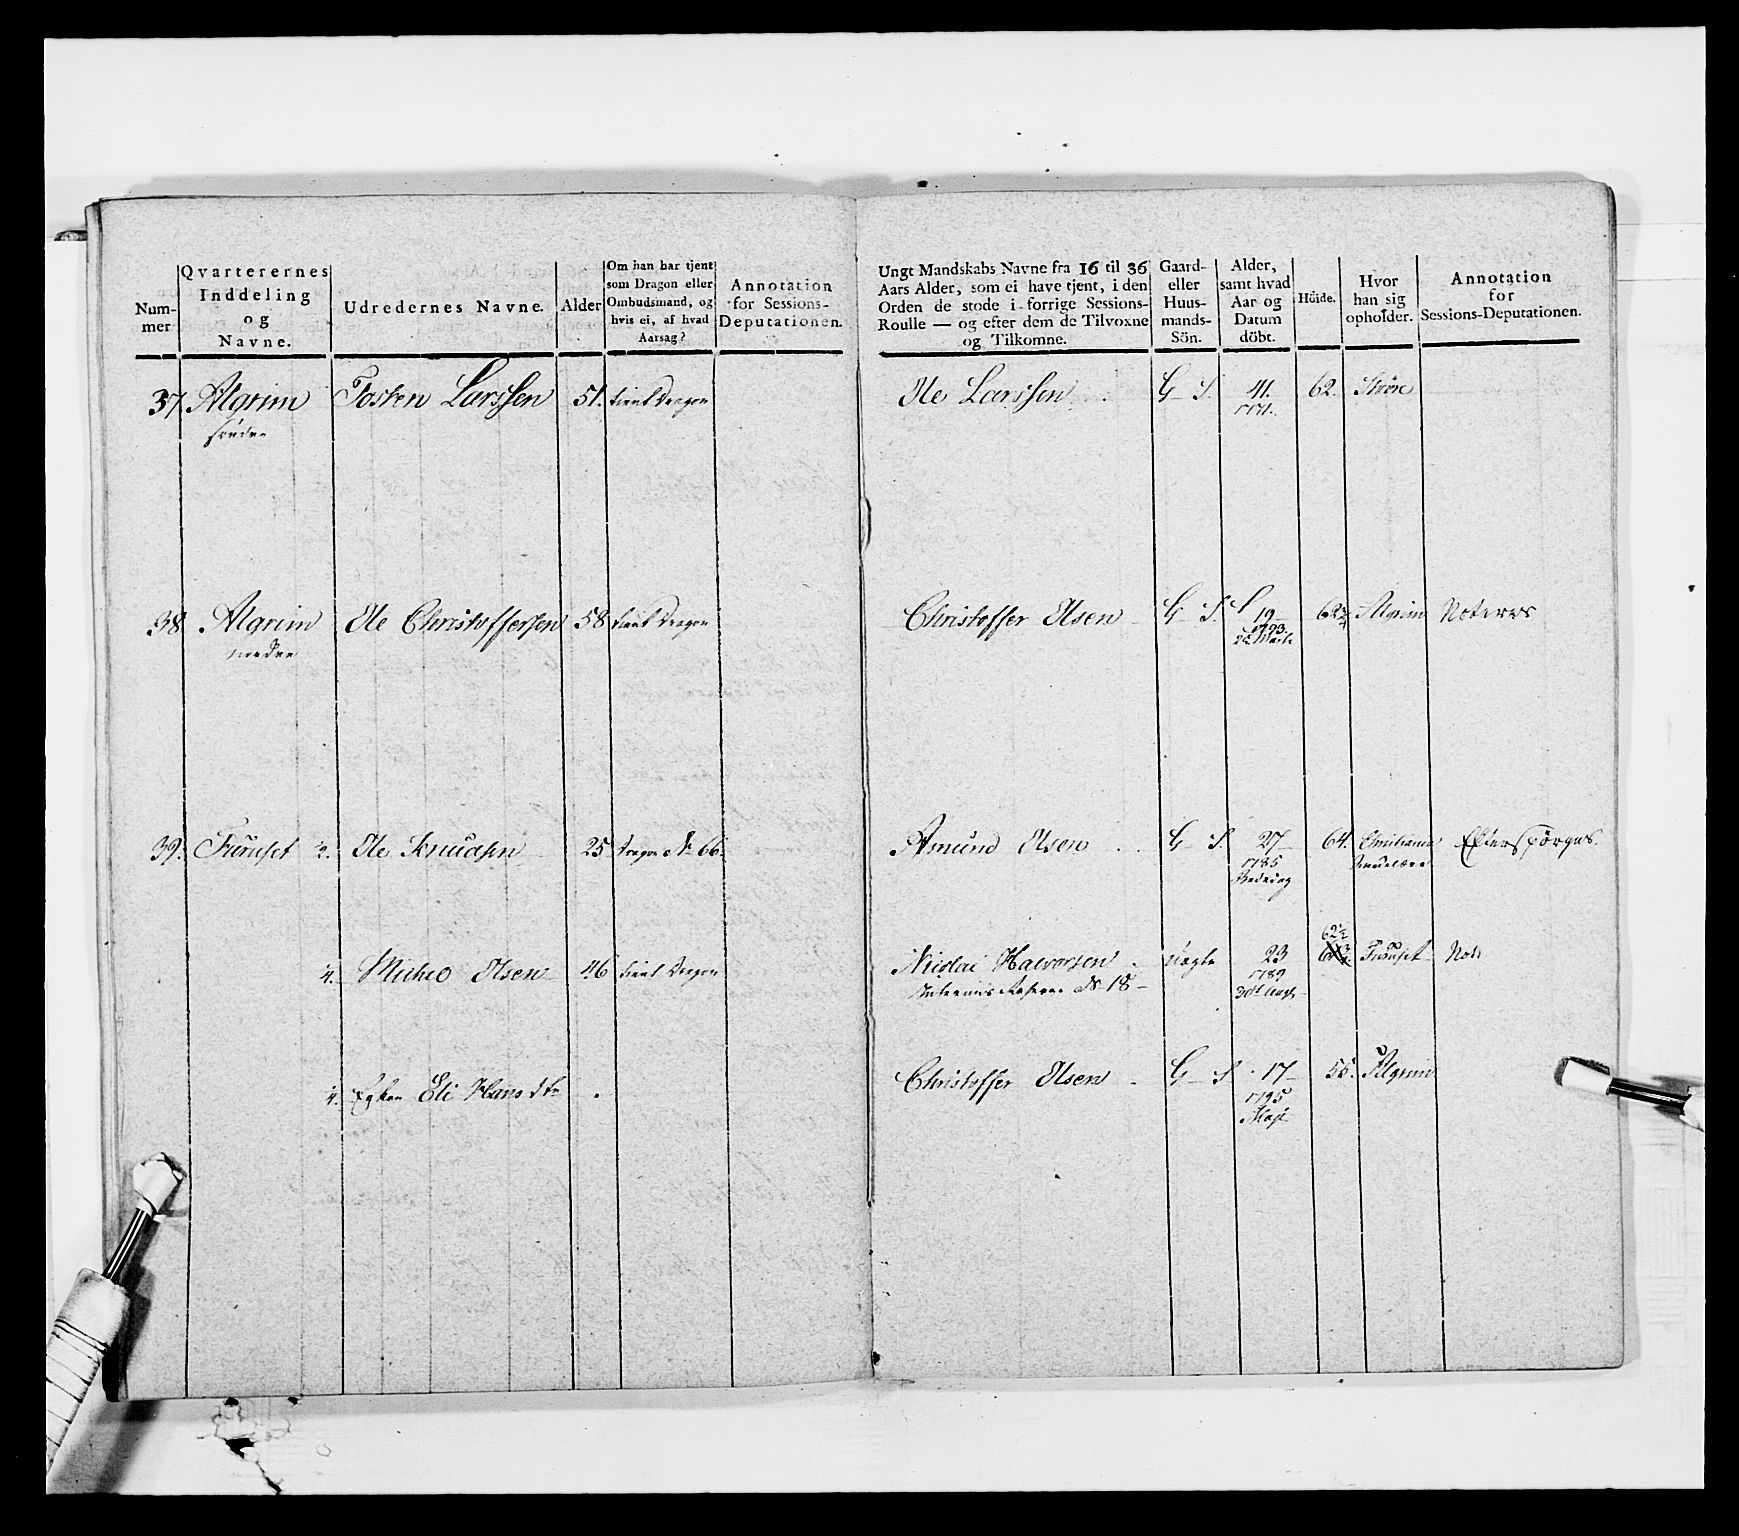 Num-
mer
Qvarterernes
Inddeling
og
Navne.
Udredernes Navne.
Alder
Om han har tjent
som Dragon eller
Ombudsmand, og
hvis ei, af hvad
Aarsag?
Annotation
for Sessions-
Deputationen.
37 Algrim Tosten Larssen 51. tient Dragon
søndre
38 Algrim Ole Christoffersen 58 tient Dragon
nordre
39. Furuset 2. Ole Knudsen 25 Dragon No 66.
4. Olsen 46 tient Dragon
4. Enken Eli Hansdtr
Ungt Mandskabs Navne fra 16 til 36
Aars Alder, som ei have tjent, i den
Orden de stode i forrige Sessions-
Roulle — og efter dem de Tilvoxne
og Tilkomne.
Gaard-
eller
Huus-
mands-
Sön.
Alder,
samt hvad
Aar og
Datum
döbt.
Höide.
Hvor
han sig
opholder.
Annotation
for
Sessions-Deputationen.
Ole Larssen G S. 41. 62.
1771.
Christoffer Olsen G S. 19 62 3/4 Algrim Noteres
1793.
Asmund Olsen G S. 27 64. Christiania Efterspörges.
1785
Nicolai Halvorsen 23 Furuset Not
62 1/2
1789
No 18
Christoffer Olsen G S 17 Algrim
1795